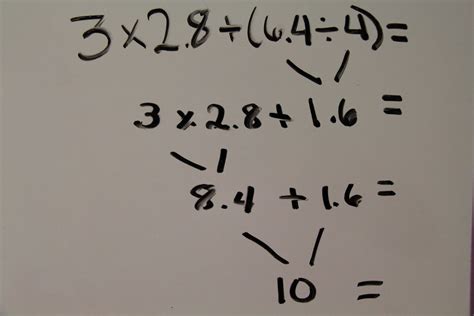 3×2.8+(6.4÷4)=
3 × 2.8 + 1.6 =
8.4 + 1.6 =
10 =